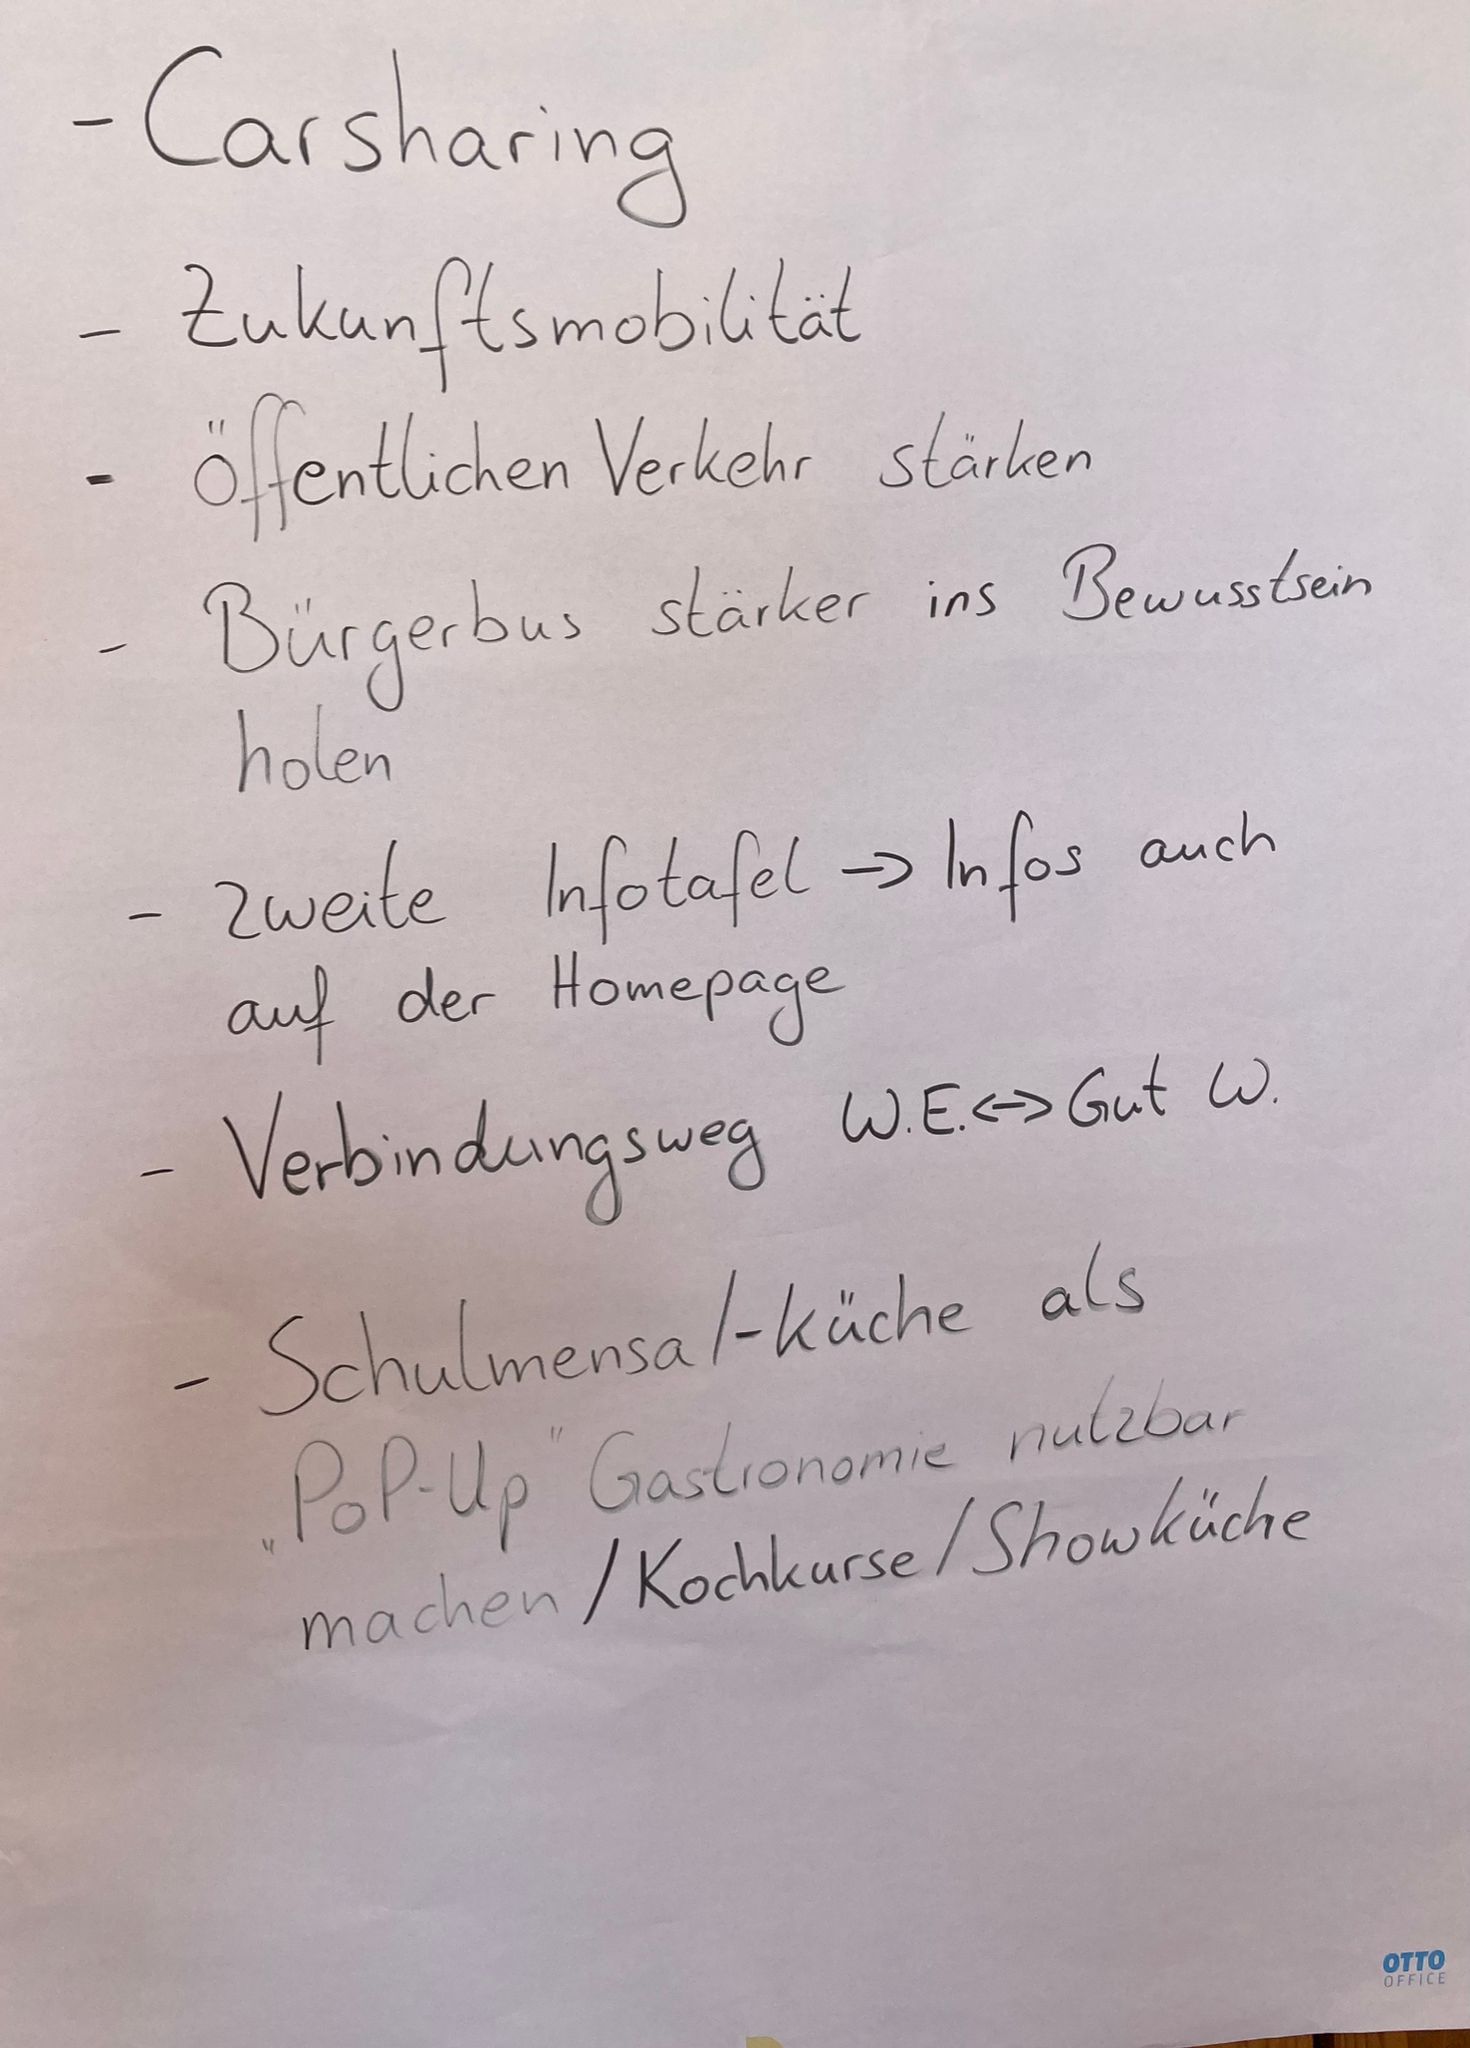 - Carsharing
- Zukunftsmobilität
- Öffentlichen Verkehr stärken
- Bürgerbus stärker ins Bewusstsein
holen
- zweite Infotafel -> Infos auch
auf der Homepage
- Verbindungsweg W.E. <-> Gut W.
- Schulmensa/-küche als
„PoP-Up" Gastronomie nutzbar
machen/Kochkurse/Showküche
OTTO
OFFICE